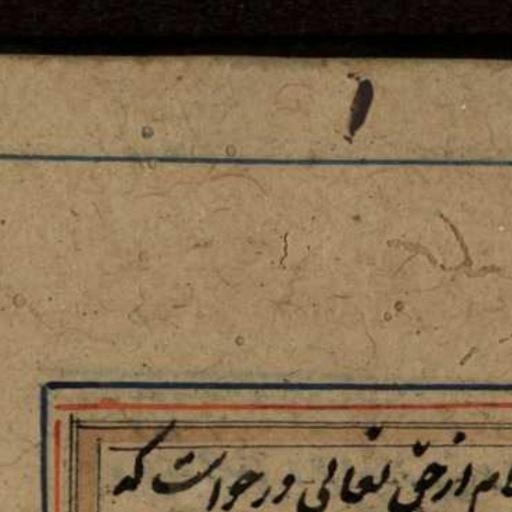 ۱
از حق تعالی درخواست که